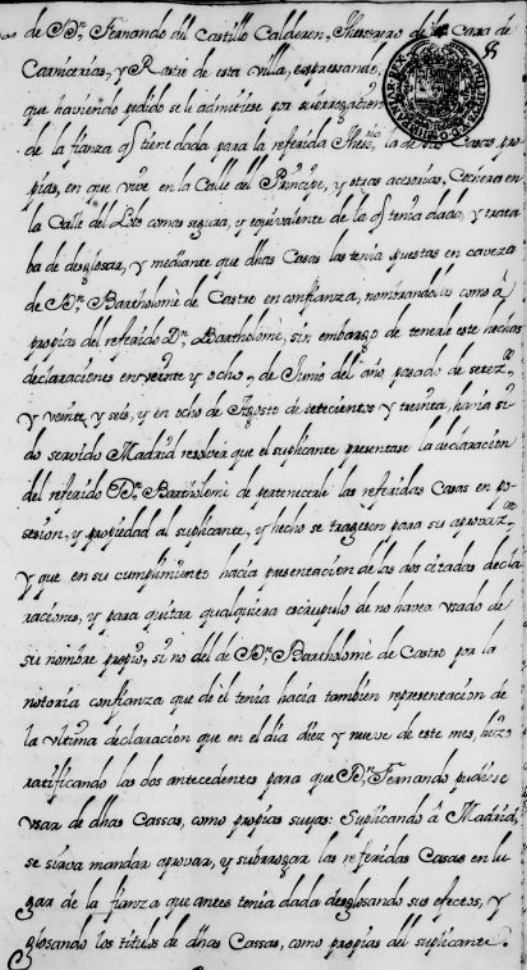 de Dn. Fernando del Castillo Calderon, Thessorero de la Cava de
Carnicerias, y Rastro de esta Villa, espressando,
que haviendo pedido se le admitiese por subrrogazion
de la fianza q tiene dada para la referida Thesria. la de sus Casas pro
pias, en que vive en la Calle del Principe, y otras acesorias, Cocheras en
la Calle del Lobo comas segura, y equivalente de la q tenia dada, y trata
ba de desglosar, y mediante que dhas Casas las tenia puestas en caveza
de Dn. Bartholomè de Castro en confianza, nombrandolas como á
propias del referido Dn. Bartholomè, sin embargo de tenerle este hechas
declaraciones en veinte y ocho, de Junio del año pasado de setezos.
y veinte y seis, y en ocho de Agosto de setecientos y treinta, havia si
do servido Madrid resolver que el suplicante presentase la declaracion
del referido Dn. Bartholomè de pertenecerle las referidas Casas en po
sesion, y propiedad al suplicante, y hecho se tragesen para su aprovazon.
y que en su cumplimiento hacia presentacion de las dos citadas decla
raciones, y para quitar qualquiera escrupulo de no haver usado de
su nombre propio, si no del de Dn. Bartholomè de Castro por la
notoria confianza que de èl tenia hacia tambien representacion de
la ultima declaracion que en el dia diez y nueve de este mes, hizo
ratificando las dos antecedentes para que Dn. Fernando pudiese
usar de dhas Cassas, como propias suyas: Suplicando â Madrid,
se sirva mandar aprovar, y subrrogar las referidas Casas en lu
gar de la fianza que antes tenia dada desglosando sus efectos, y
glosando los titulos de dhas Cassas, como propias del suplicante.